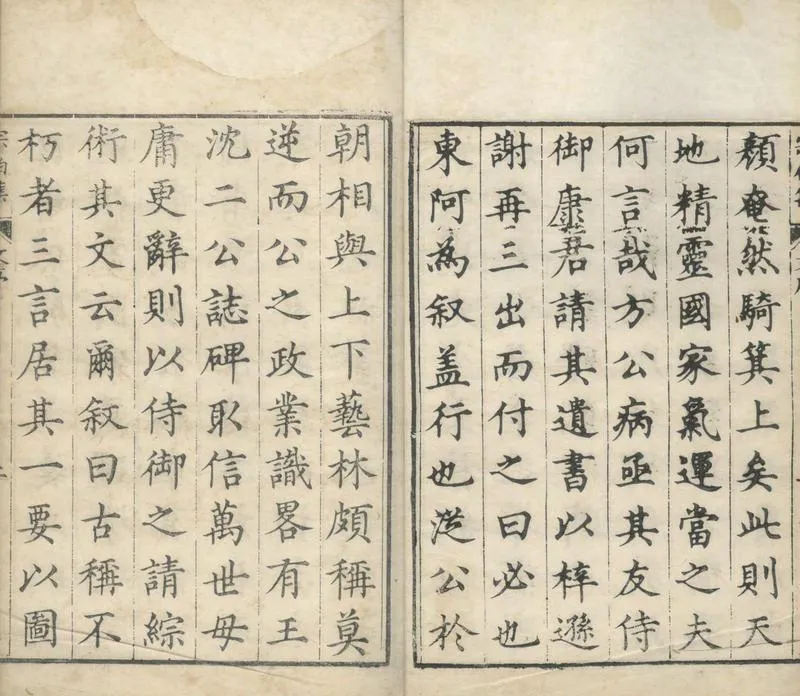 頹奄然騎箕上矣此則天
地精靈國家氣運當之夫
何言哉方公病亟其友侍
御康君請其遺書以梓遜
謝再三出而付之曰必也
東阿為叙盖行也從公於
朝相與上下藝林頗稱莫
逆而公之政業識畧有王
沈二公誌碑取信萬世毋
庸更辭則以侍御之請綜
術其文云爾叙曰古稱不
朽者三言居其一要以圖